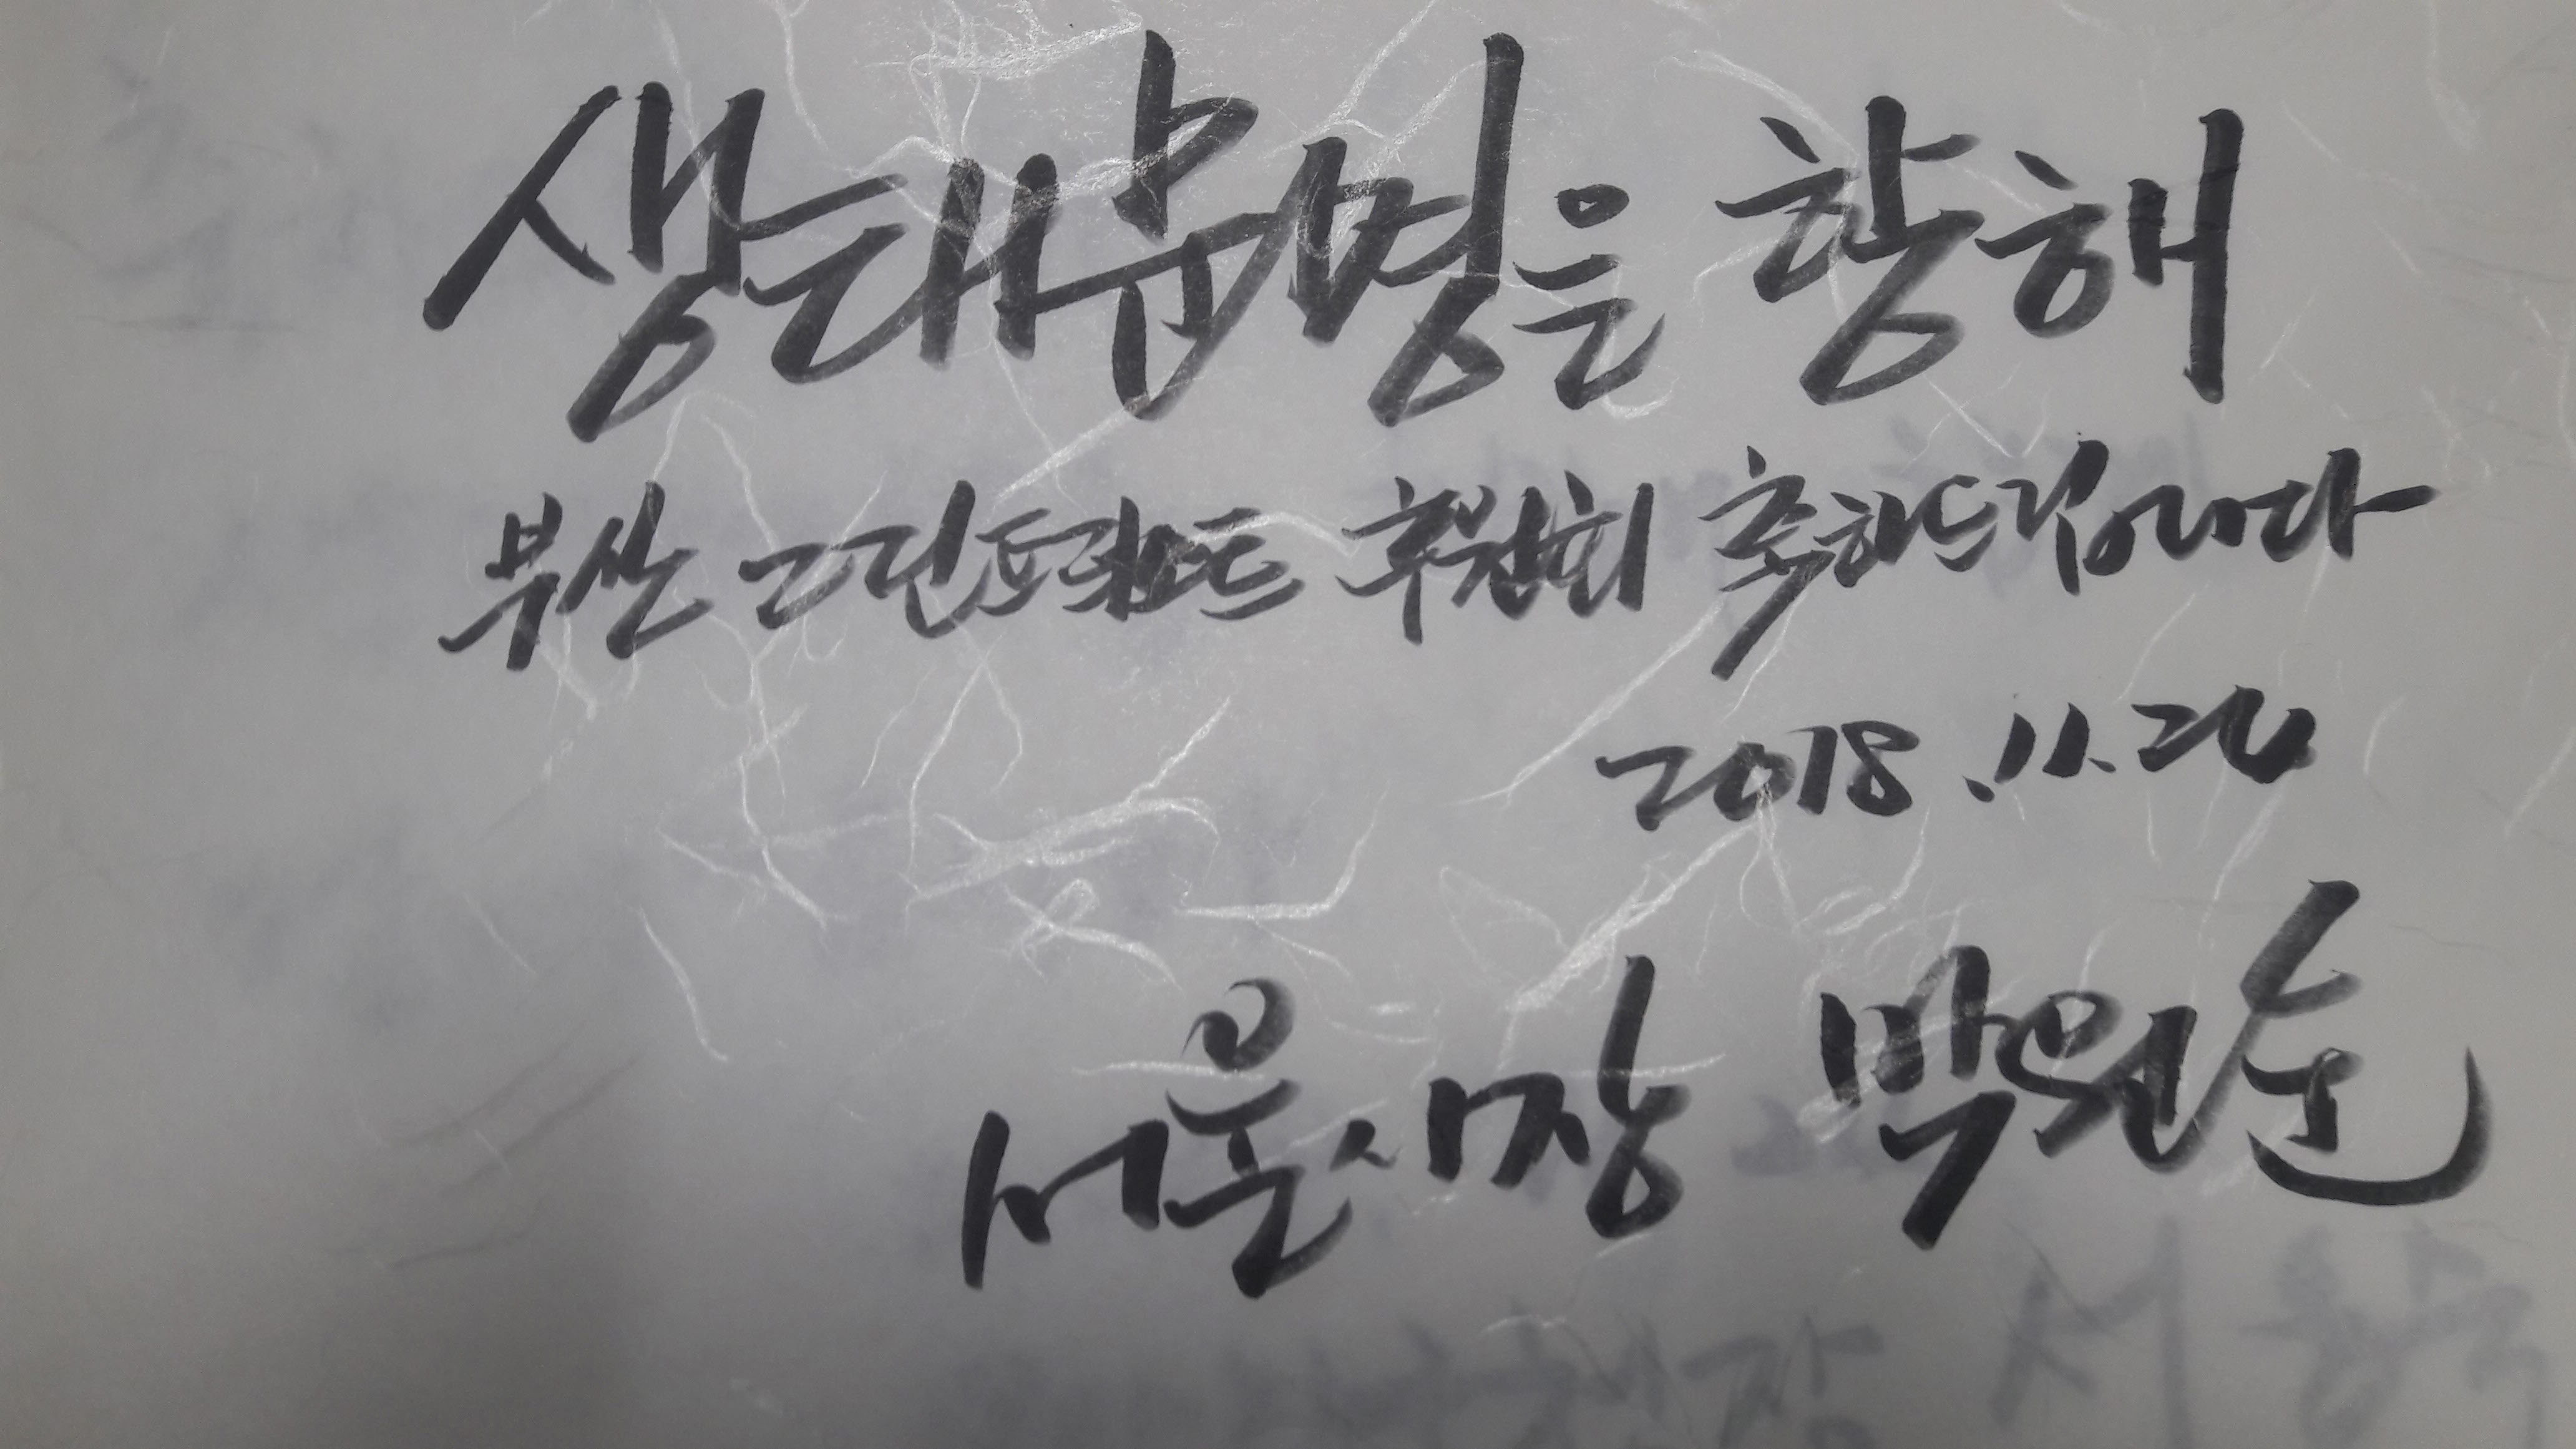 생태문명을 향해
부산 그린트러스트 후원회 축하드립니다
2018.11.20
서울시장 박원순